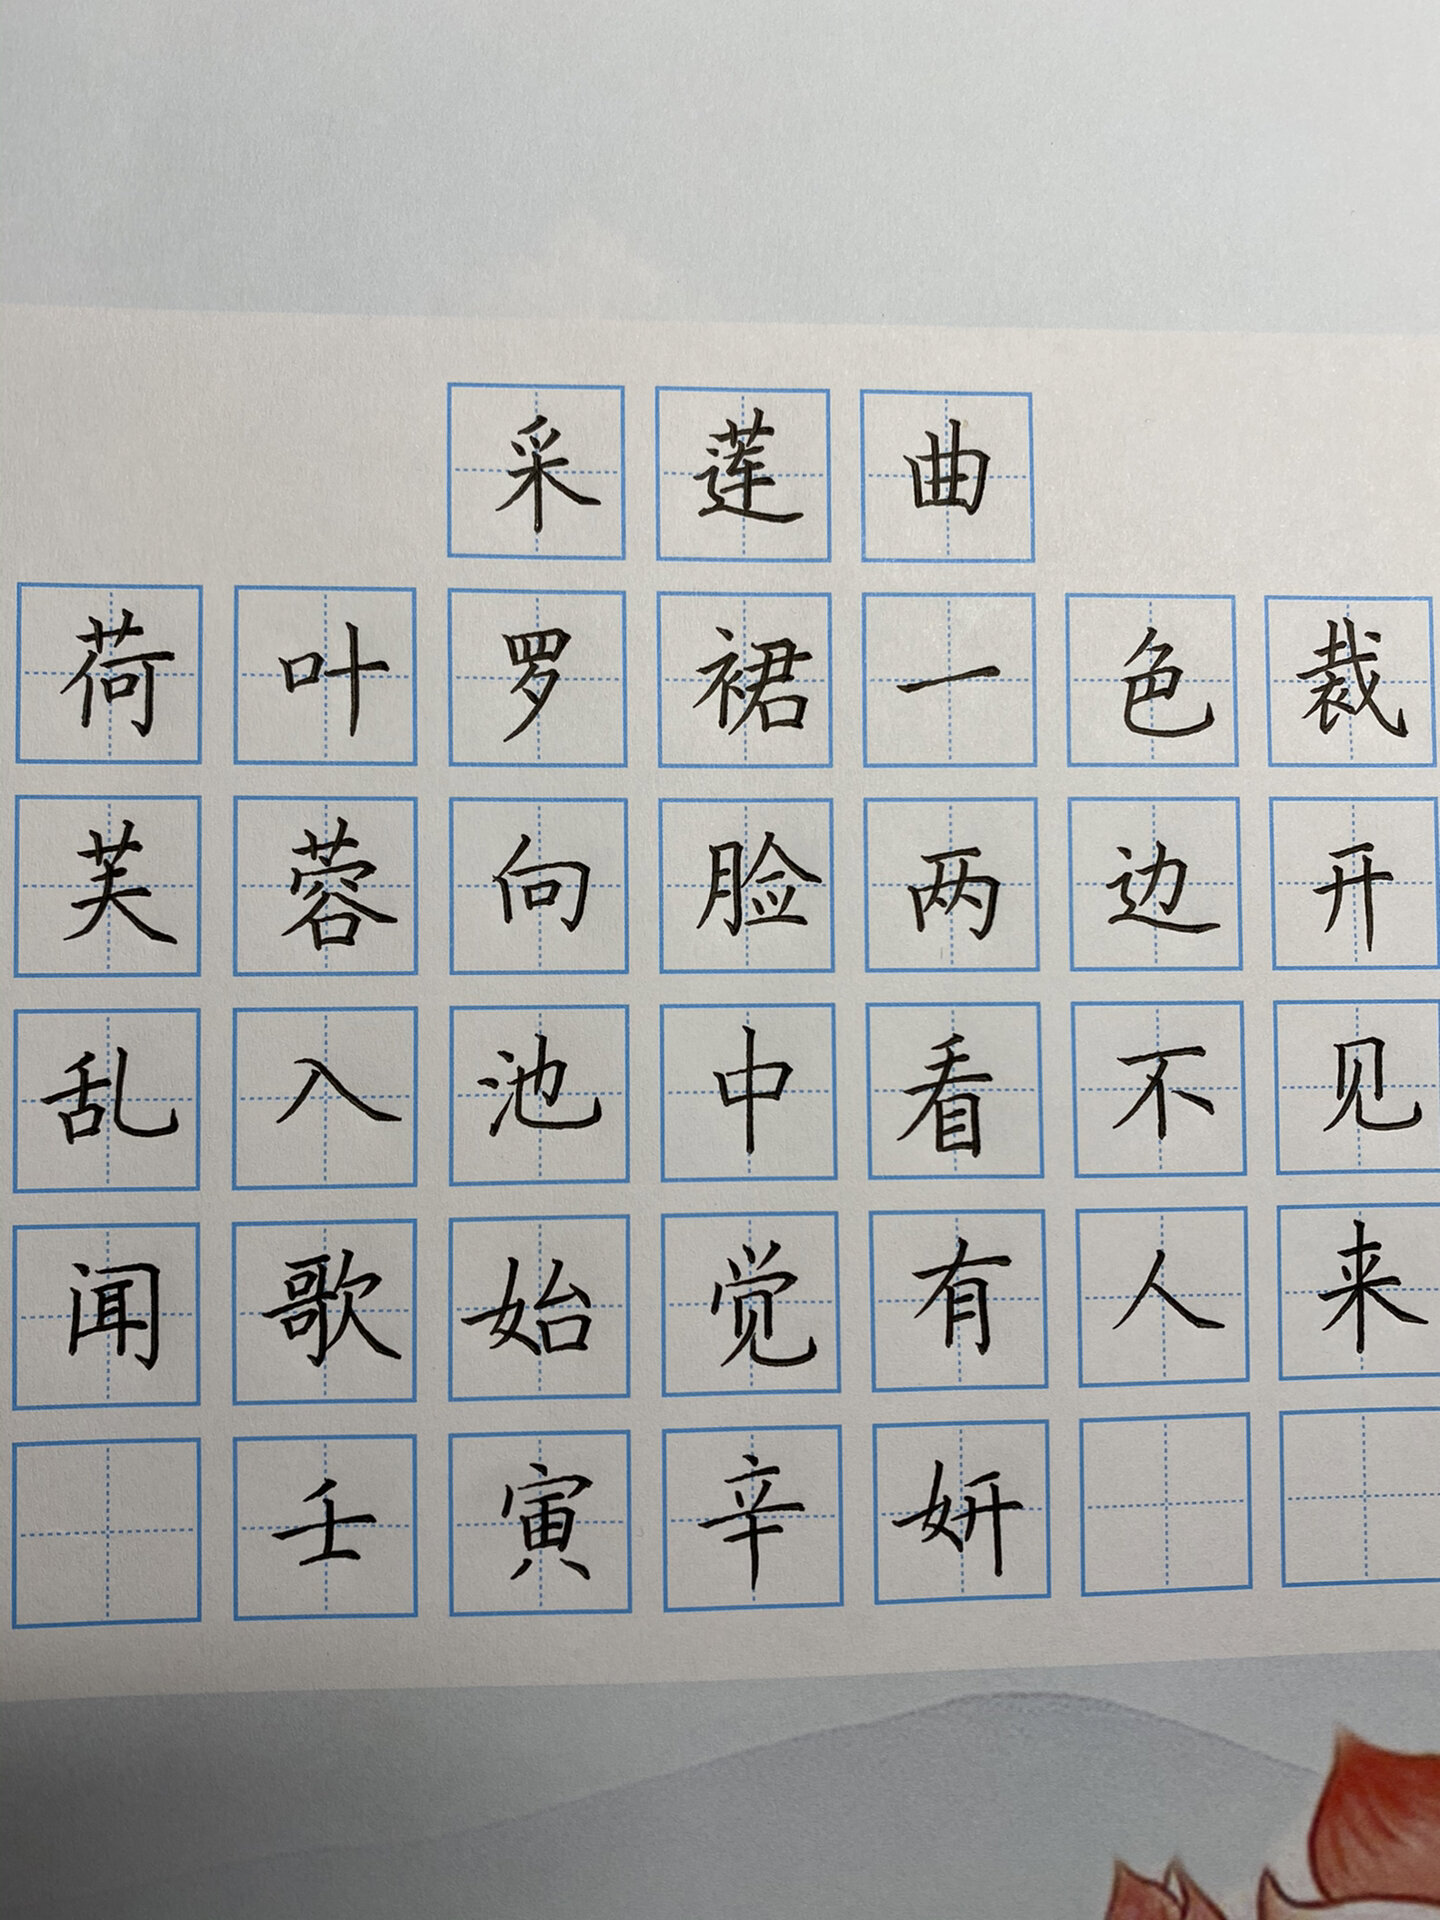 采莲曲
荷叶罗裙一色裁
芙蓉向脸两边开
乱入池中看不见
闻歌始觉有人来
壬寅辛妍